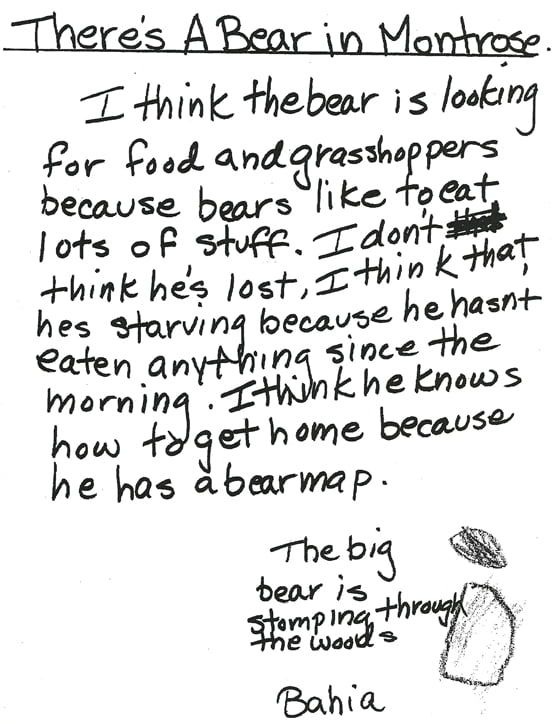 There's A Bear in Montrose.
I think the bear is looking
for food and grasshoppers
because bears like to eat
lots of stuff. I don't
think he's lost, I think that
hes starving because he hasn't
eaten anything since the
morning. I think he knows
how to get home because
he has a bear map.
The big
bear is
stomping through
the woods
Bahia